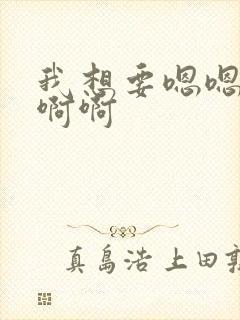 我想要嗯嗯
啊啊
真島浩上田敦